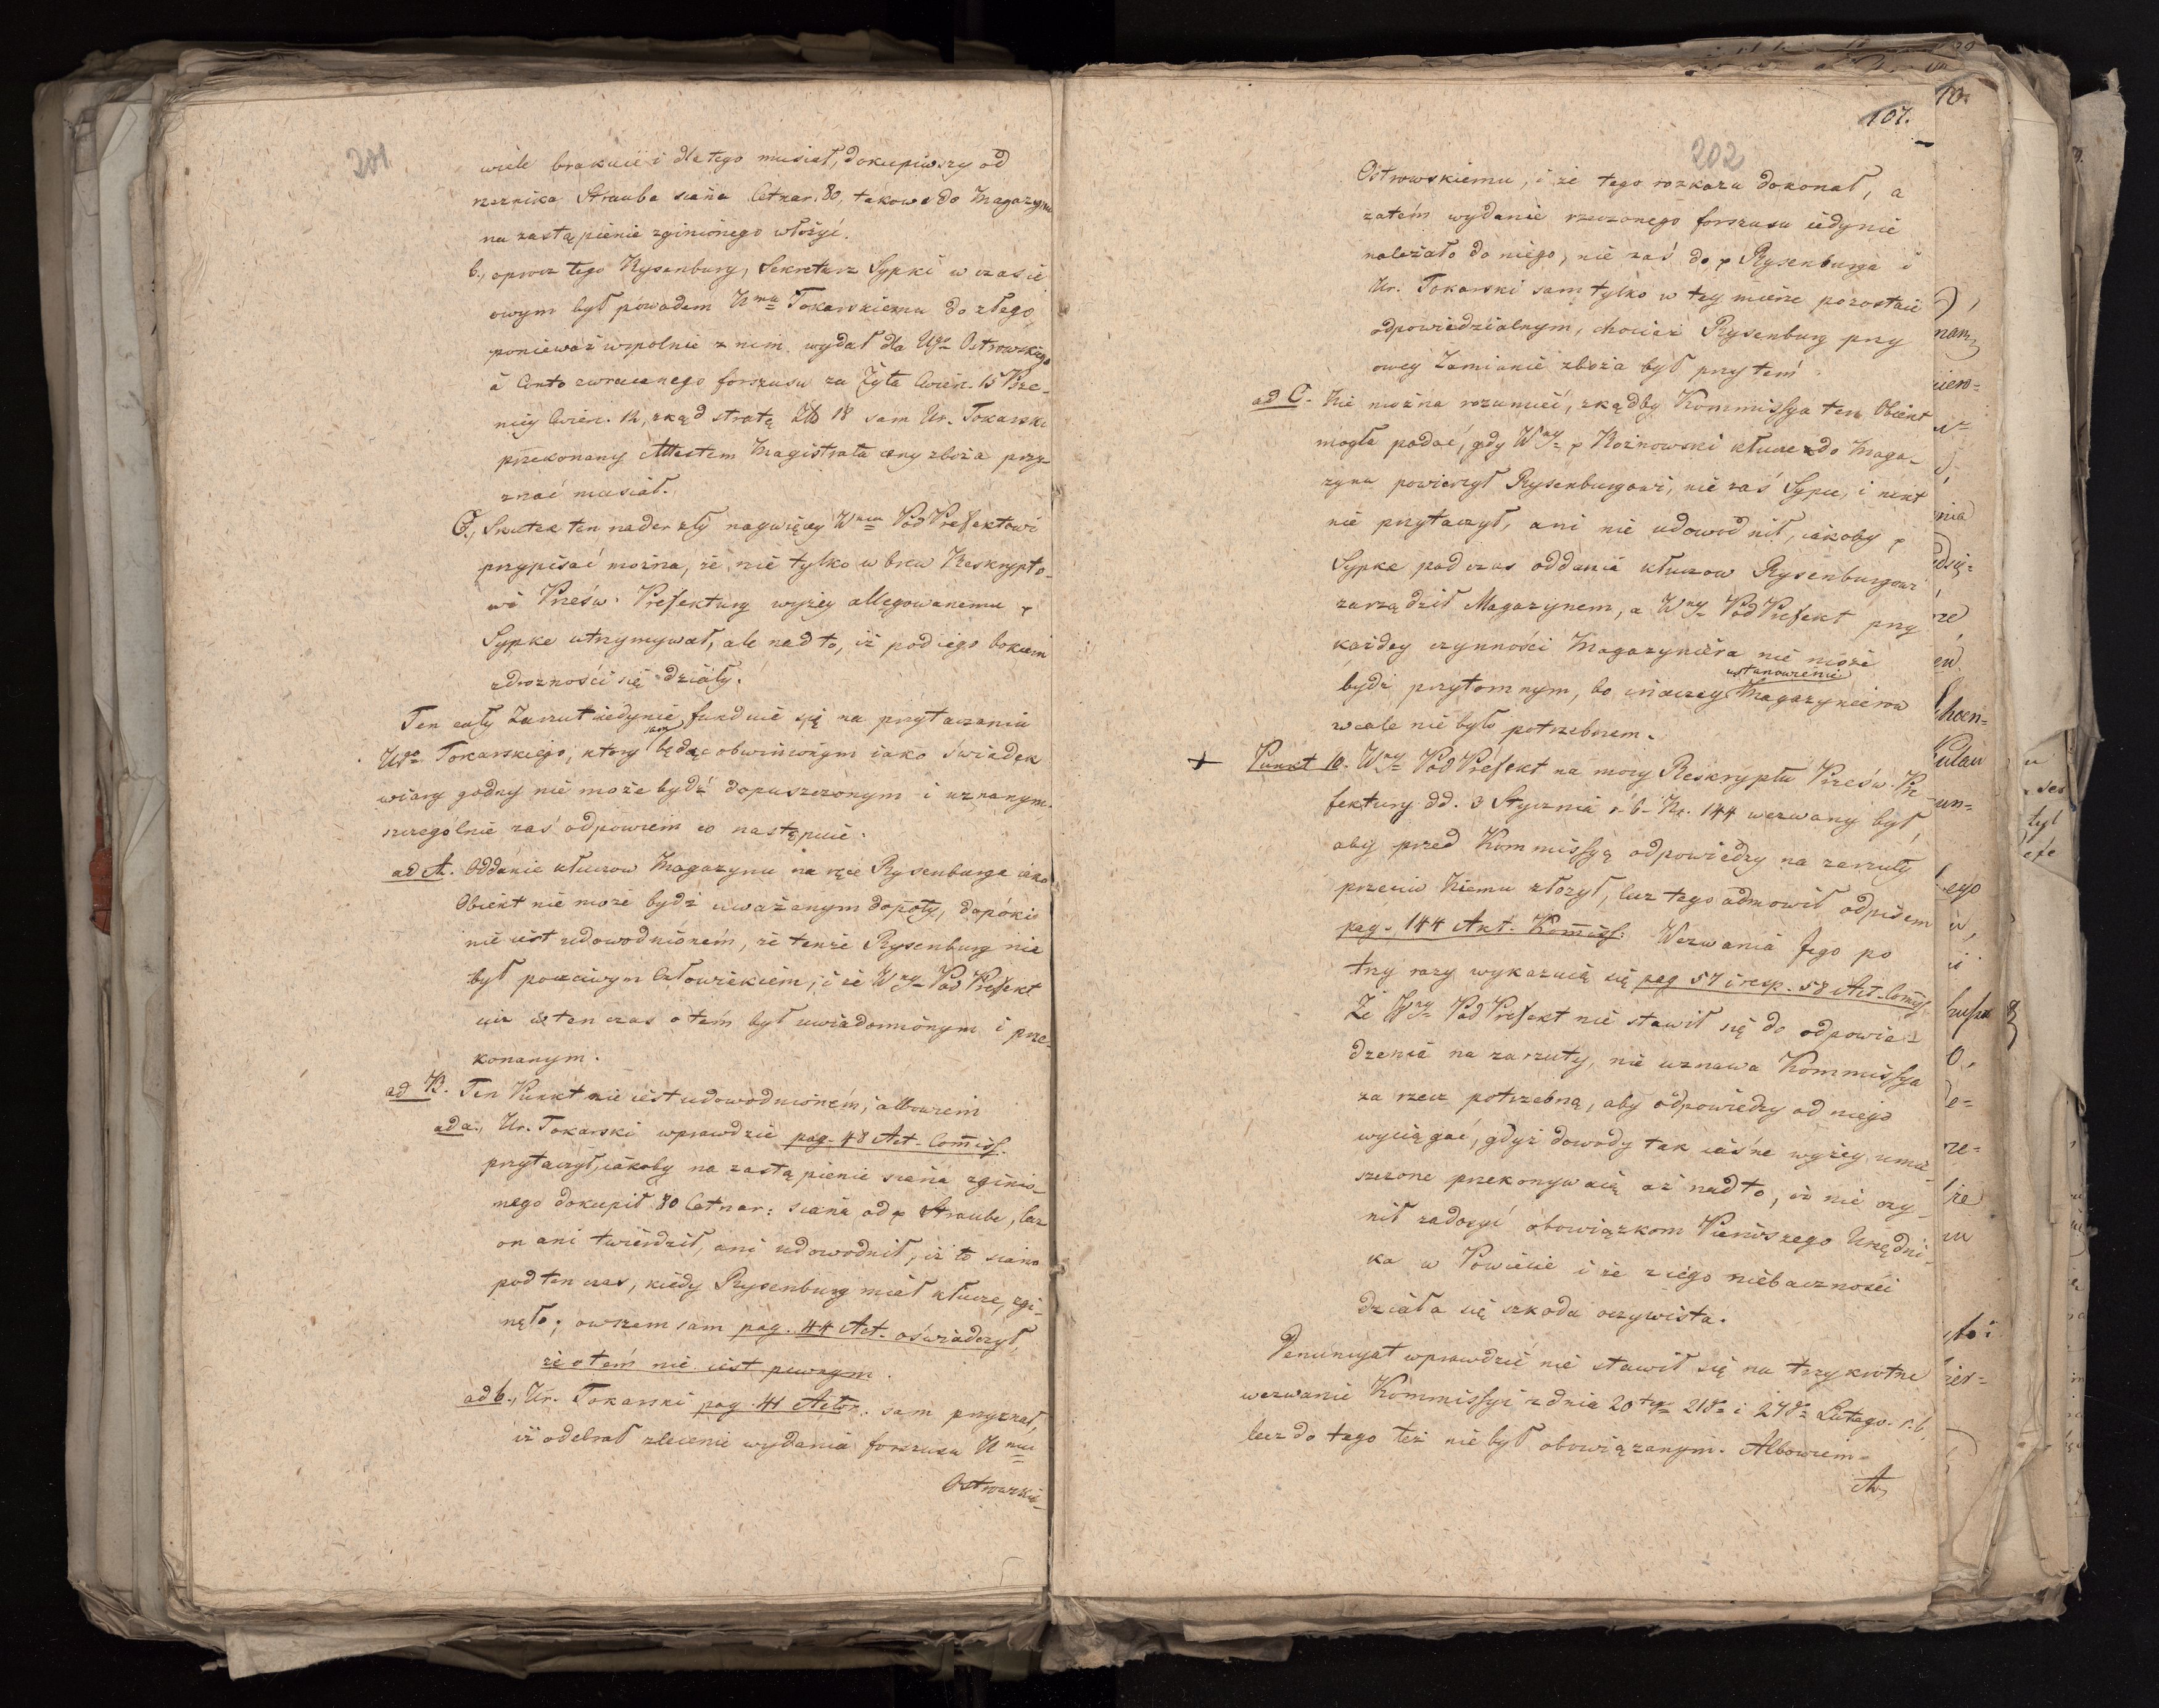 201
wiele brakuie i dla tego musiał, dokupiwszy od
rzeznika Straube siana Cetnar. 80, takowe do Magazynu
na zastąpienie zginionego włożyć.
b., oprocz tego Rysenburg, Sekretarz Sypki w czasie
owym był powodem Urmu Tokarskiemu do złego
ponieważ wspolnie z nim wydał dla Ugo Ostrowskiego
à Conto zwroconego forszusu za Żyta Cwierc. 15 Psze-
nicy Cwierc. 12, zkąd stratę 18 sam Ur. Tokarski
przekonany Attestem Magistratu ceny zboża przy-
znać musiał.
C., Skutek ten nader zły naywięcey Wmu PodPrefektowi
przypisać można, że nie tylko w brew Reskrypto-
wi Prześw. Prefektury wyżey allegowanemu p
Sypke utrzymywał, ale nad to, iż pod iego bokiem
zdrozności się działy.
Ten cały Zarzut iedynie funduie się na przytaczaniu
sam
Ugo Tokarskiego, ktory będąc obwinionym iako świadek
wiary godny nie może bydź dopuszczonym i uznanym.
szczególnie zaś odpowiem co następuie.
ad A. Oddanie kluczow Magazynu na ręce Rysenburga iako
Obiekt nie może bydź uważanym dopoty, dopóki
nie iest udowodnionem, że tenże Rysenburg nie
był poczciwym Człowiekiem, i że Wny PodPrefekt
iuż w ten czas o tem był uwiadomionym i prze-
konanym.
ad B. Ten Punkt nie iest udowodnionem, albowiem
ad a., Ur. Tokarski wprawdzie pag. 48 Act. Comiss.
przytaczył, iakoby na zastąpienie siana zginio-
nego dokupił 80 Cetnar: siana od p Straube, lecz
on ani twierdził, ani udowodnił, iż to siano
pod ten czas, kiedy Rysenburg miał klucze, zgi-
nęło; owszem sam pag. 44 Act. oświadczył,
że o tem nie iest pewnym.
ad b., Ur. Tokarski pag. 41 Actor. sam przyznał,
iż odebrał zlecenie wydania forszusu Umu
Ostrowskie-
107.
202
Ostrowskiemu, i że tego rozkazu dokonał, a
zatém wydanie rzeczonego forszusu iedynie
należało do niego, nie zaś do p Rysenburga i
Ur. Tokarski sam tylko w tey mierze pozostaie
odpowiedzialnym, chociaż Rysenburg przy
owey Zamianie zboża był przytem
ad C. Nie można rozumieć, zkądby Kommissya ten Obiekt
mogła podać, gdy Wny p Rożnowski klucze do Maga-
zynu powierzył Rysenburgowi, nie zaś Sypce, i nikt
nie przytaczył, ani nie udowodnił, iakoby p
Sypke podczas oddanie kluczow Rysenburgowi
zarządził Magazynem, a Wny PodPrefekt przy
każdey czynności Magazyniera nie może
ustanowienie
bydź przytomnym, bo inaczey Magazynierow
wcale nie było potrzebnem.
+ Punkt 10. Wny PodPrefekt na mocy Reskryptu Prześw. Pre
fektury dd. 3 Stycznia r. b. Nr. 144 wezwany był,
aby przed Kommissyą odpowiedzy na zarzuty
przeciw Niemu złożył, lecz tego odmowił odpisem
pag. 144 Akt. Komiss. Wezwania Jego po
trzy razy wykazuią się pag 57 i resp. 58 Act. Comiss.
Że Wny PodPrefekt nie stawił się do odpowie-
dzenia na zarzuty, nie uznawa Kommissya
za rzecz potrzebną, aby odpowiedzy od niego
wyciągać, gdyż dowody tak iaśne wyżey umie-
szczone przekonywaią aż nadto, iż nie czy-
nił zadosyć obowiązkom Pierwszego Urzędni-
ka w Powiecie i że z iego niebaczności
działa się szkoda oczywista.
Denuncyat wprawdzie nie stawił się na trzykrotne
wezwanie Kommissyi z dnia 20 21 i 27 Lutego r. b.
lecz do tego też nie był obowiązanym. Albowiem
A,